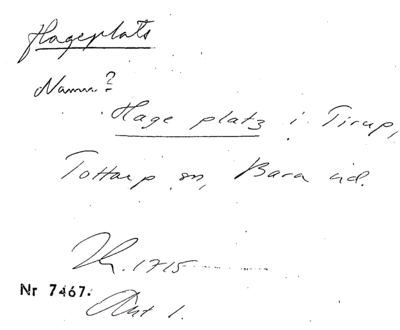 Hageplats
Namn?
Hage platz i Tirup,
Tottarp sn, Bara hd.
1715
Nr 7467.
Akt 1.